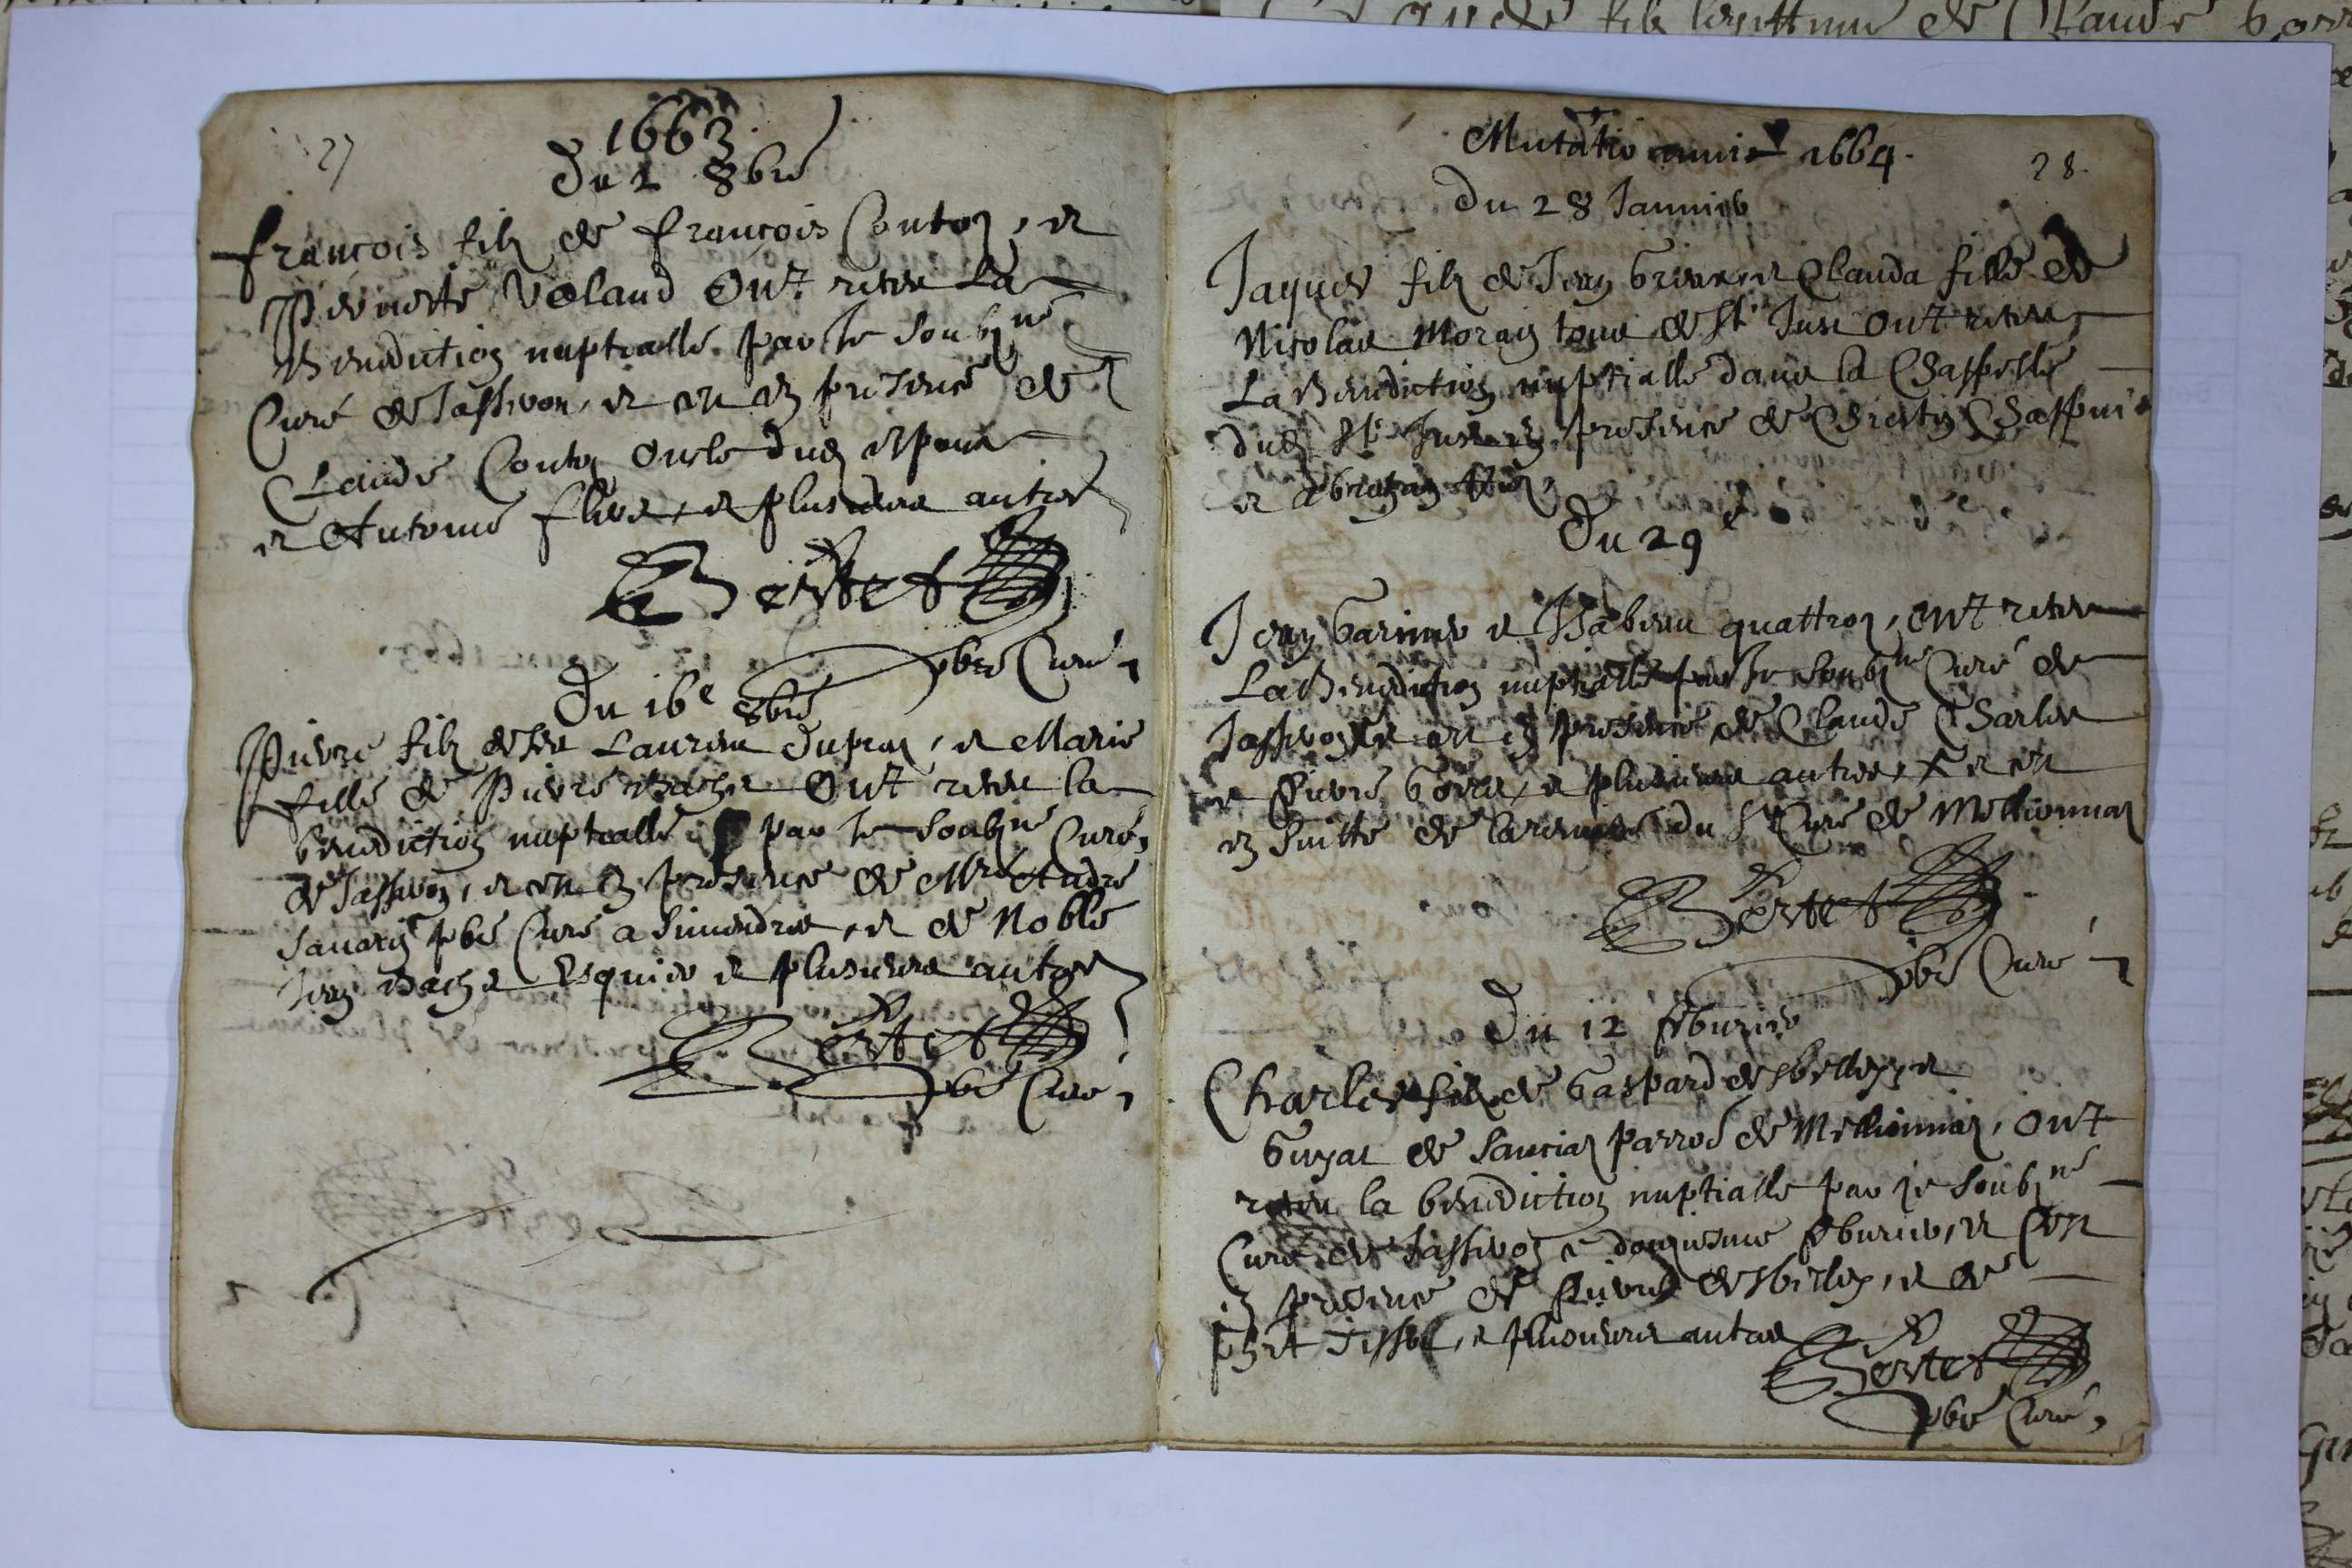 27
1663
Du 2 8bre
françois filz de françois Conton, et
Pernette Voland Ont receu La
Benediction nuptialle par Je soubzné
Curé de Jasseron, et ce en presence de
Claude Conton oncle dud espoux
et Antoine et plusieurs autres
Bertet
pbre Curé
Du 16e 8bre
Pierre filz de feu Laurent Dupras, et Marie
fille de Pierre Bachet Ont receu la
benediction nuptialle par Je soubzné Curé
de Jasseron, et ce en presence de Mre André
Sauarin pbre Curé a Simandre, et de Noble
Jean Bachet Esquier et plusieurs autres
Bertet
pbre Curé
Mutatio anni 1664.
28.
du 28 Januier
Jaques filz de Jean et Clauda fille de
Nicolas Morain tous de St Just ont receu
La Benediction nuptialle dans la Chappelle
dud St Just en presence de Chrestin Chappuis
et
Du 29e
Jean Garnier et Isabeau quattron, ont receu
La Benediction nuptialle par Je soubzné Curé de
Jasseron et ce en presence de Claude Charles
et Pierre et plusieurs autres, et ce
en suitte de la remise du Sr Curé de Meillionnas
Bertet
pbre Curé
Du 12 feburier
Charles filz de Gaspard desbelley, et
de Sancia parrod de Meillionnas, Ont
receu la benediction nuptialle par je soubzné
Curé de Jasseron ce douziesme feburier, et ce
en presence de Pierre desbelley, et de
et plusieurs autres
Bertet
pbre Curé